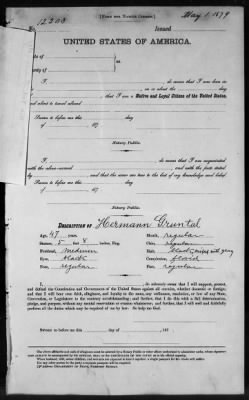 12203
[FORM FOR NATIVE CITIZEN.]
Issued May 1, 1879
UNITED STATES OF AMERICA.
State of
County of
I, do swear that I was born in
on or about the day
that I am a Native and Loyal Citizen of the United States,
and about to travel abroad
Sworn to before me this day
of 187
Notary Public.
I, do swear that I am acquainted
with the above-named
by are true to the best of my knowledge and belief.
Sworn to before me this day
of 187
Notary Public.
DESCRIPTION OF Hermann Gruntal
Age, 47 years.
Stature, 5 feet 8 inches, Eng.
Forehead, medium
Eyes, black
Nose, regular
Mouth, regular
Chin, regular
Hair, black, mixed with gray
Complexion, florid
Face, regular
I, do solemnly swear that I will support, protect,
and defend the Constitution and Government of the United States against all enemies, whether domestic or foreign;
and that I will bear true faith, allegiance, and loyalty to the same, any ordinance, resolution, or law of any State,
Convention, or Legislature to the contrary notwithstanding; and further, that I do this with a full determination,
pledge, and purpose, without any mental reservation or evasion whatsoever; and further, that I will well and faithfully
perform all the duties which may be required of me by law. So help me God.
Sworn to before me this day of , 187